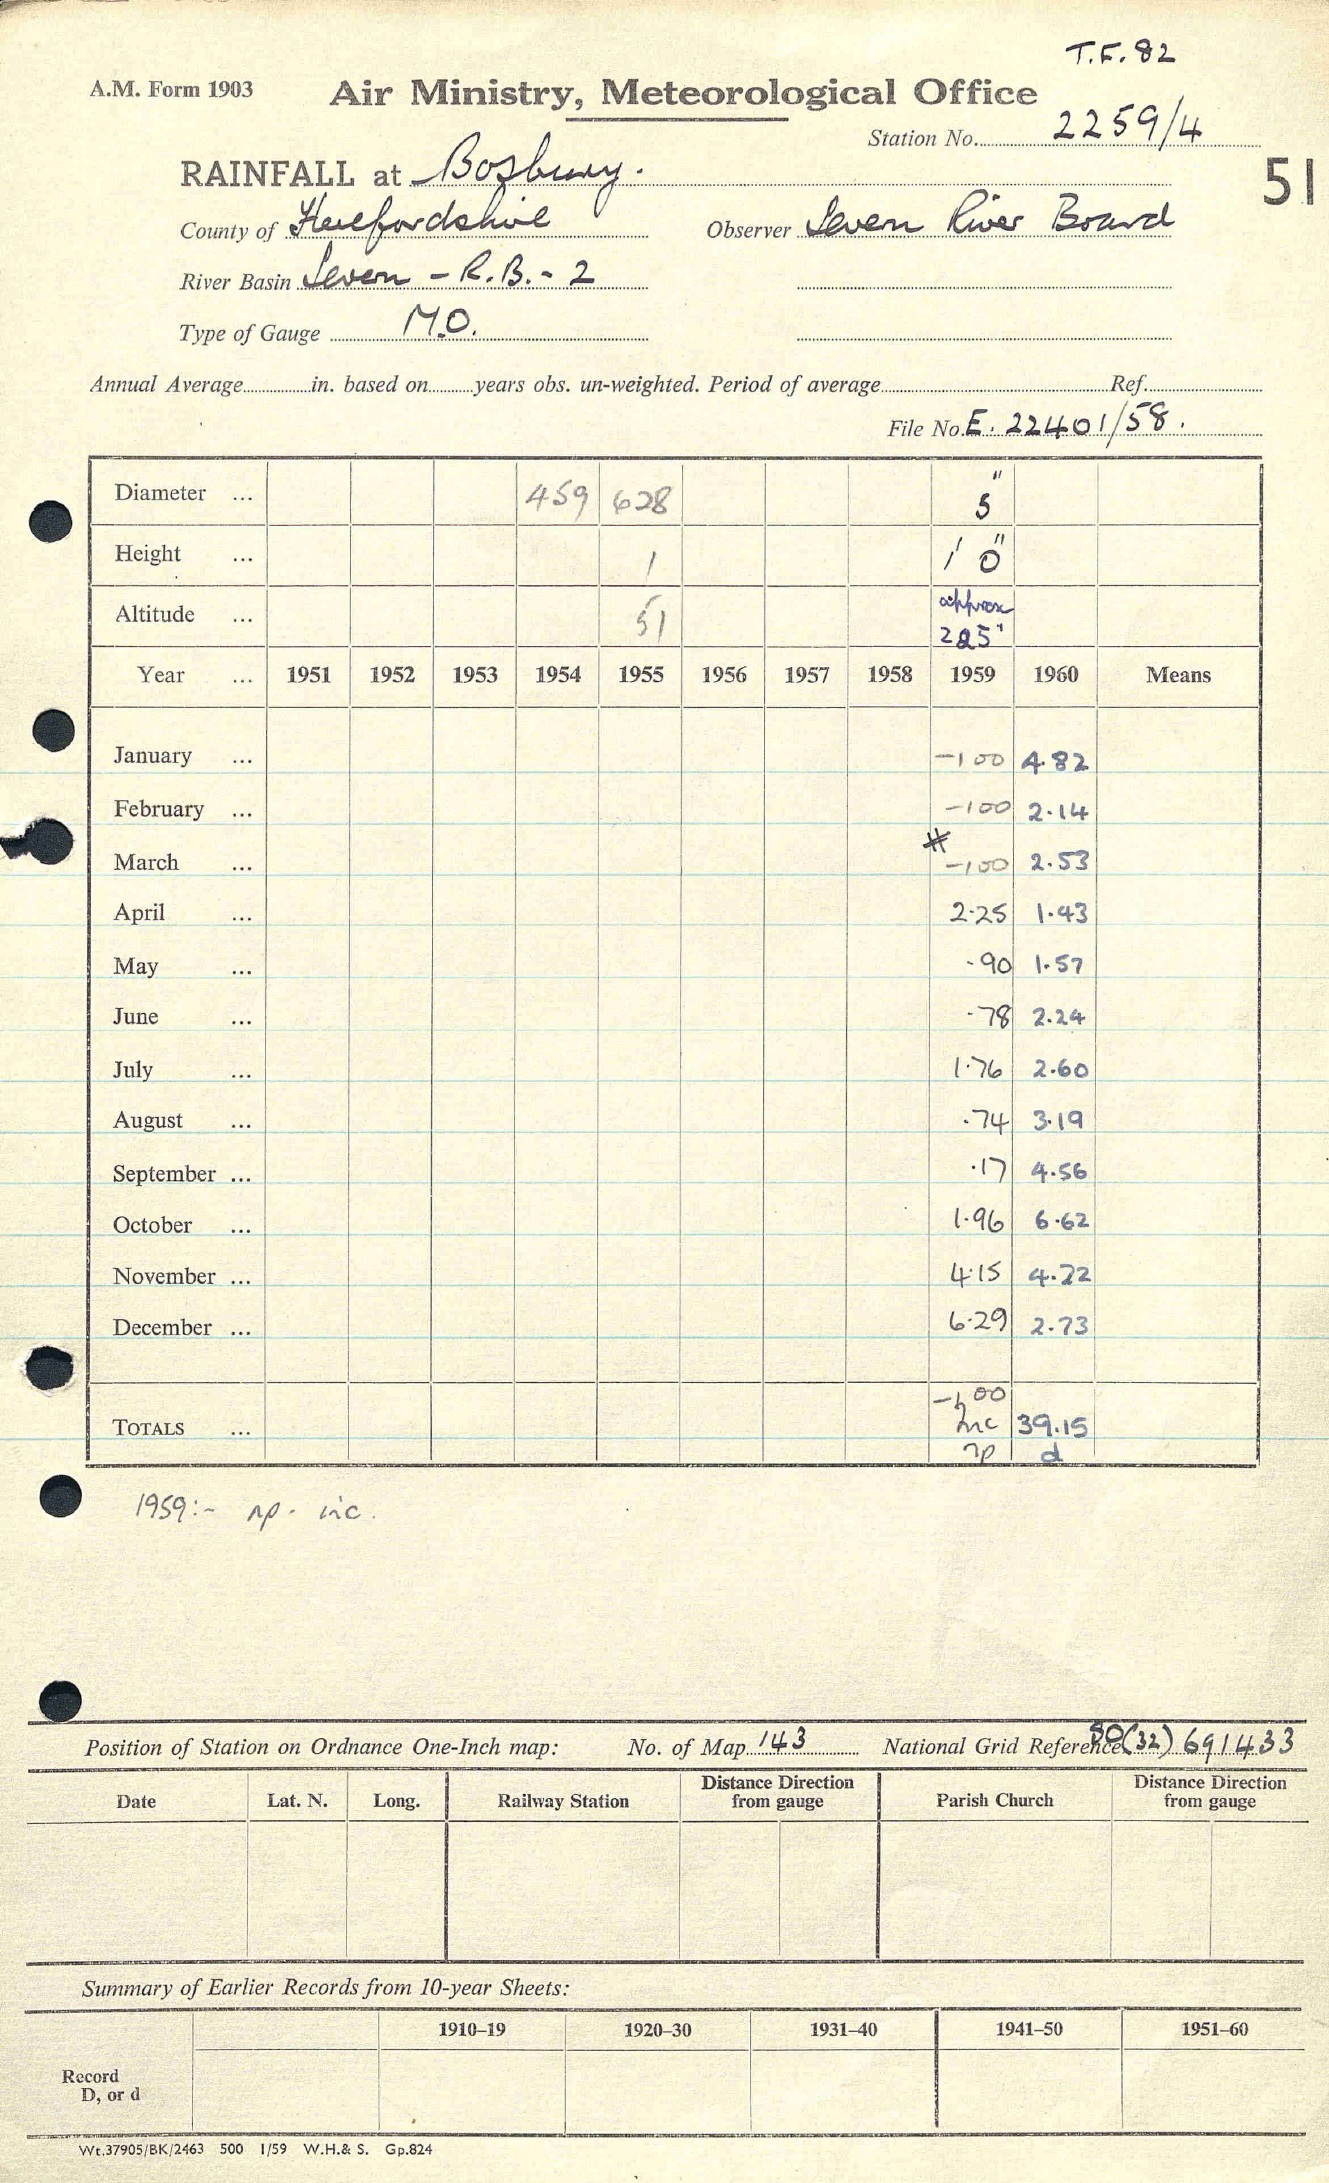 T.F. 82
A.M. Form 1903 Air Ministry, Meteorological Office
Station No. 2259/4
RAINFALL at Bosbury. 51
County of Herefordshire Observer Severn River Board
River Basin Severn - R.B. - 2
Type of Gauge M.O.
Annual Average in. based on years obs. un-weighted. Period of average Ref.
File No. E. 22401/58.
Diameter ... 459 628 5"
Height ... 1 1' 0"
Altitude ... 51 approx
Year ... 1951 1952 1953 1954 1955 1956 1957 1958 1959 1960 Means
January ... -100 4.82
February ... -100 2.14
March ... -100 2.53
April ... 2.25 1.43
May ... .90 1.57
June ... .78 2.24
July ... 1.76 2.60
August ... .74 3.19
September ... .17 4.56
October ... 1.96 6.62
November ... 4.15 4.72
December ... 6.29 2.73
-100
TOTALS ... Inc 39.15
np d
1959:- np. inc.
Position of Station on Ordnance One-Inch map: No. of Map 143 National Grid Reference (32) 691433
Date Lat. N. Long. Railway Station Distance Direction from gauge Parish Church Distance Direction from gauge
Summary of Earlier Records from 10-year Sheets:
1910–19 1920–30 1931–40 1941–50 1951–60
Record
D, or d
Wt.37905/BK/2463 500 1/59 W.H.& S. Gp.824